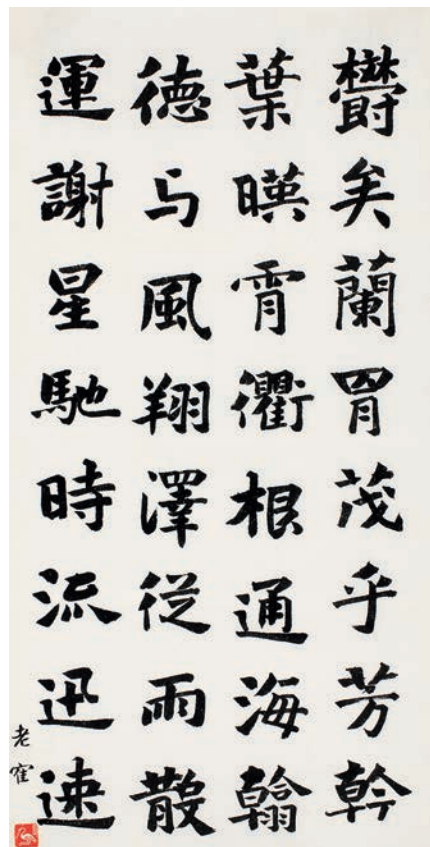 欝矣蘭胃茂乎芳幹
葉暎霄衢根通海翰
德与風翔澤從雨散
運謝星馳時流迅速
老窪